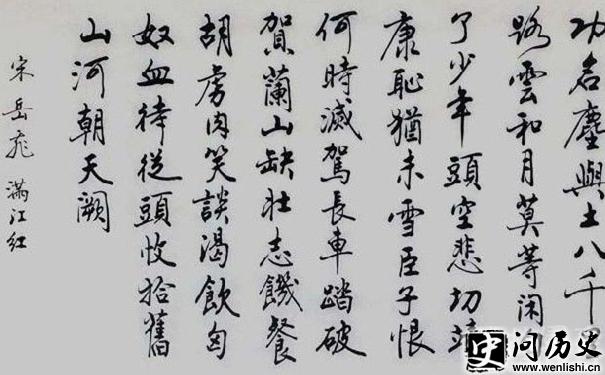 功名塵與土八千
路雲和月莫等闲
了少年頭空悲切靖
康恥猶未雪臣子恨
何時滅駕長車踏破
賀蘭山缺壮志饑餐
胡虜肉笑談渴飲匈
奴血待從頭收拾舊
山河朝天闕
宋岳飛 满江红
史 问历史
www.wenlishi.cn